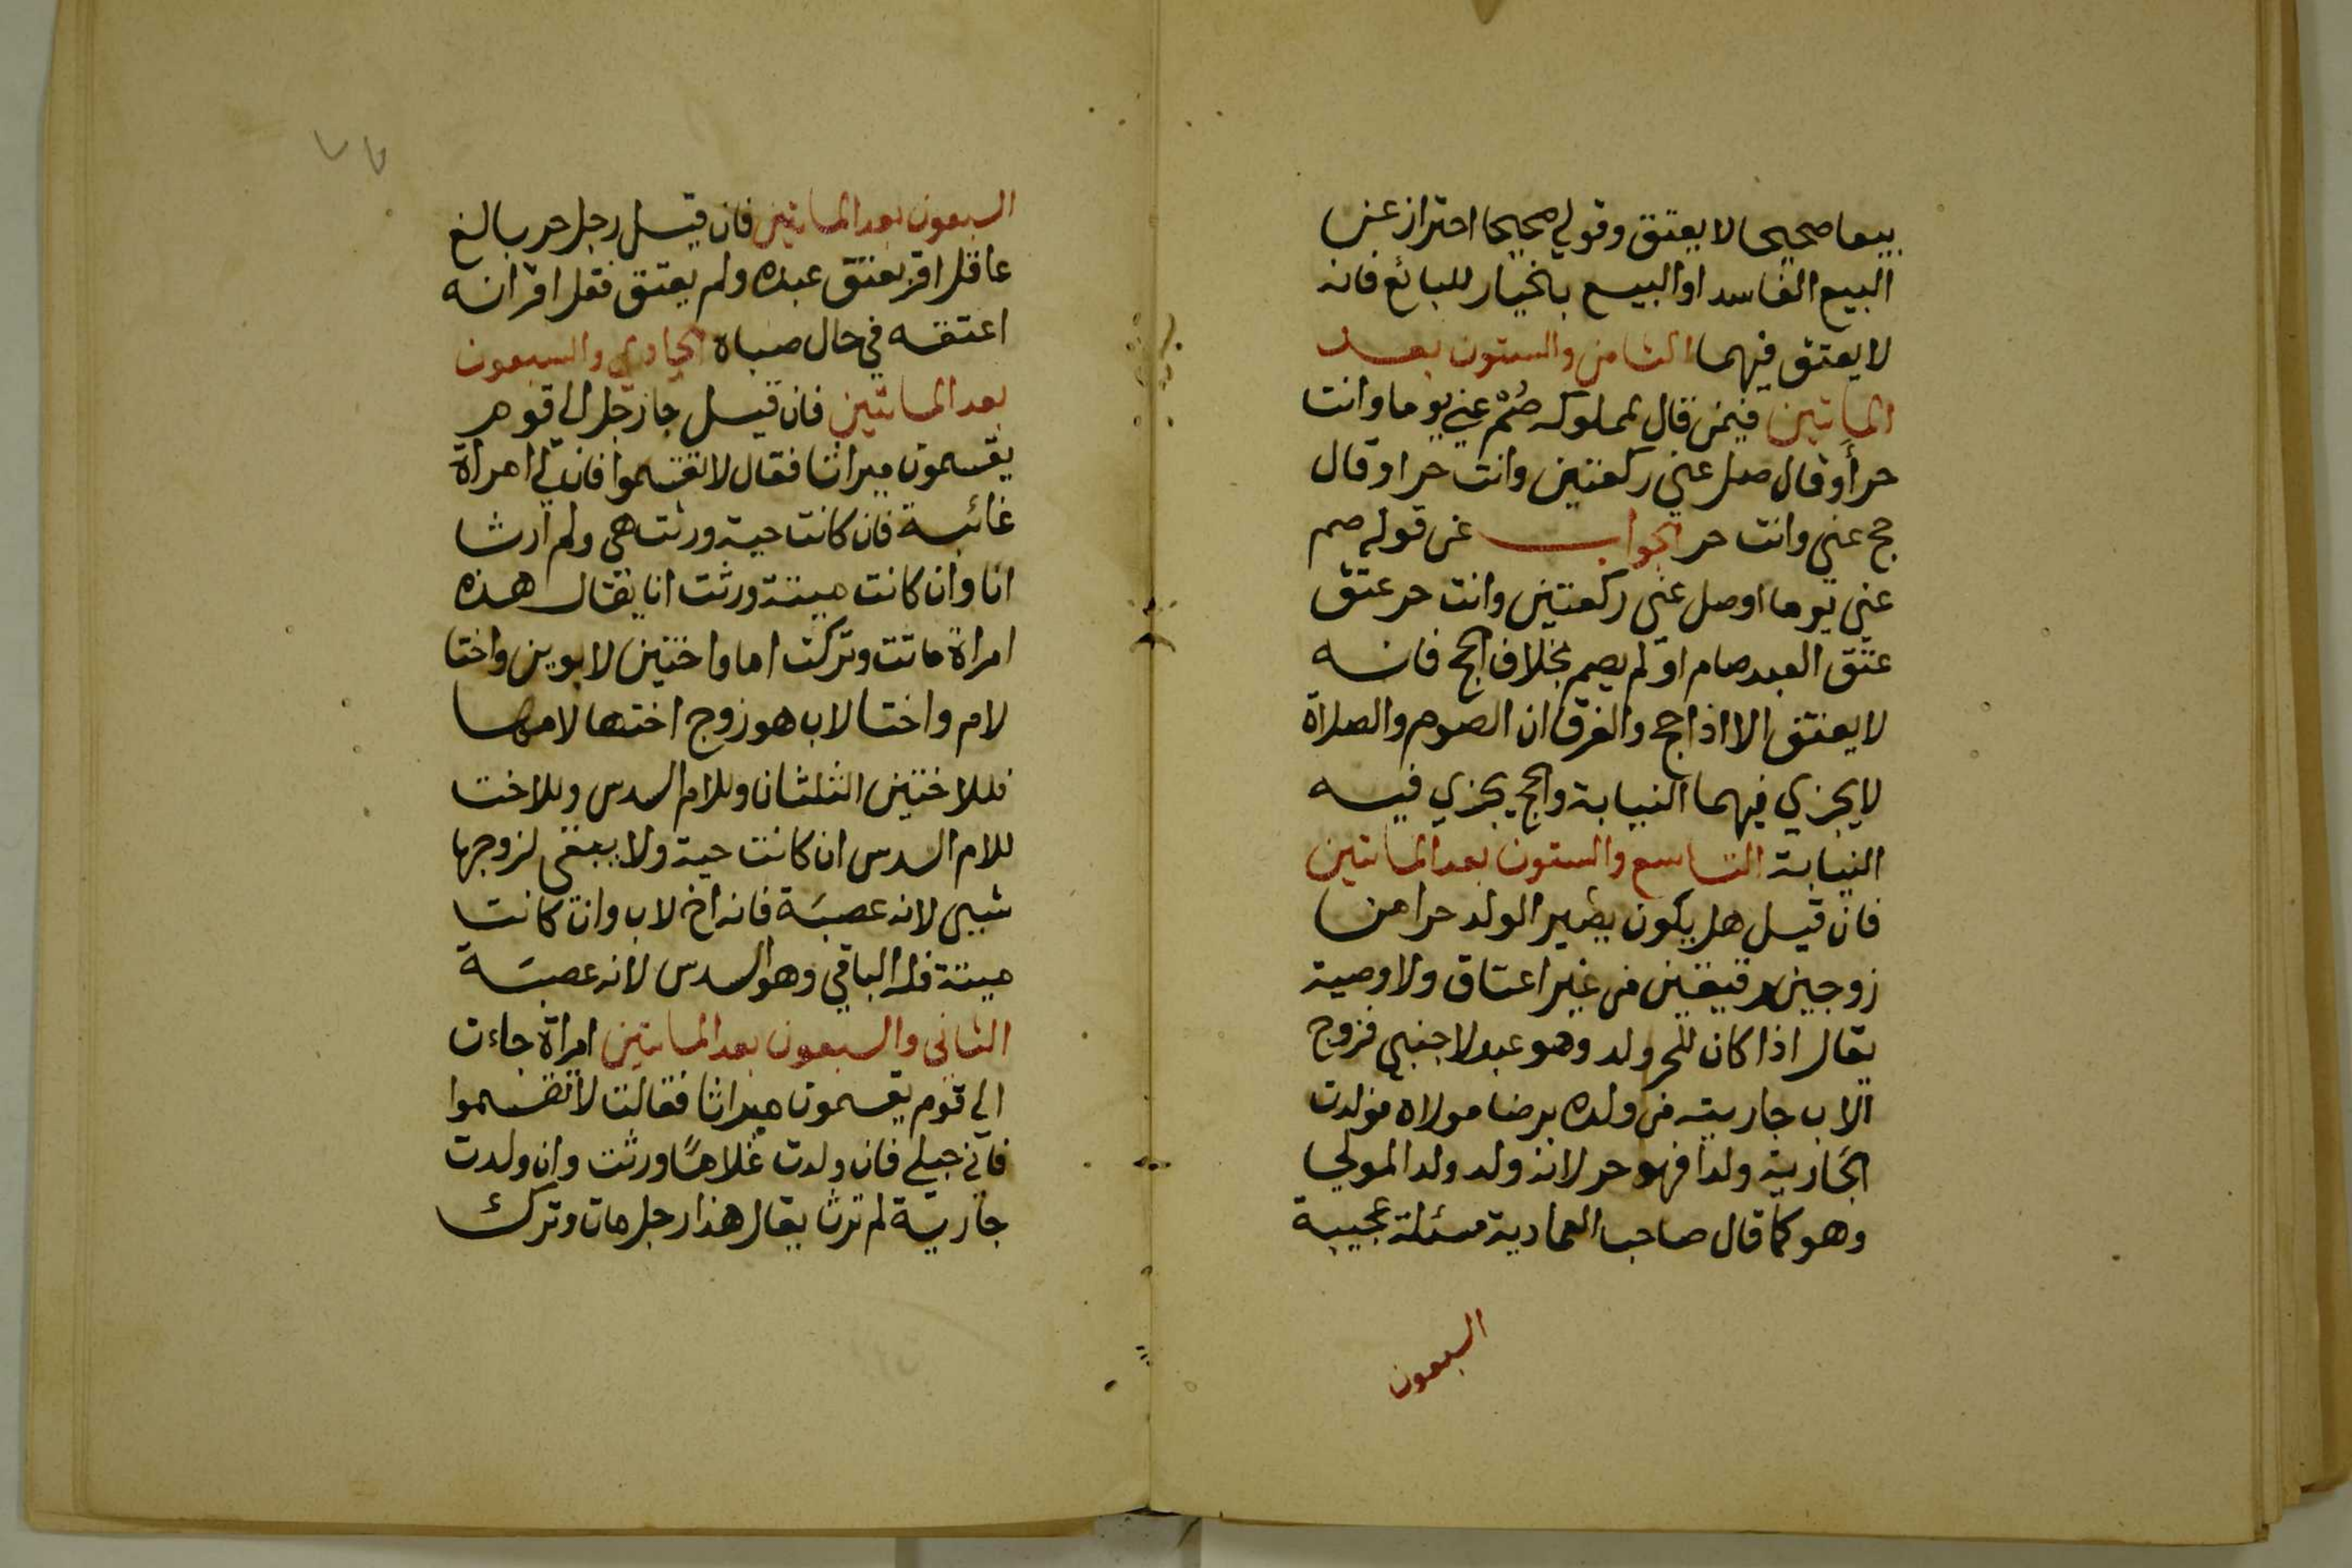 بيعا صحيحا لا يعتق وقولي صحيحا احتراز عن
البيع الفاسد او البيع بالخيار للبائع فانه
لا يعتق فيهما الثامن والستون بعد
الماتين فيمن قال لمملوكه صُمْ عني يوما وانت
حر أو قال صل عني ركعتين وانت حر او قال
حج عني وانت حر الجواب عن قوله صم
عني يوما اوصل عني ركعتين وانت حر عتق
عتق العبد صام او لم يصم بخلاف الحج فانه
لا يعتق الا اذا حج والفرق ان الصوم والصلاة
لا يجزي فيهما النيابة والحج يجزي فيه
النيابة التاسع والستون بعد الماتين
فان قيل هل يكون يصير الولد حرا من
زوجين رقيقين من غير اعتاق ولا وصية
يقال اذا كان للحر ولد وهو عبد لاجنبي فزوج
الاب جاريته من ولده برضا مولاه فولدت
الجارية ولدا فهو حر لانه ولد ولد المولي
وهو كما قال صاحب العمادية مسئلة عجيبة
السبعون
٧٧
السبعون بعد الماتين فان قيل رجل حر بالغ
عاقل اقر بعتق عبده ولم يعتق فقل اقر انه
اعتقه في حال صباه الحادي والسبعون
بعد الماتين فان قيل جا رجل الى قوم
يقسمون ميراثا فقال لا تقتسموا فان لي امراة
غائبة فان كانت حية ورثت هي ولم ارث
انا وان كانت ميتة ورثت انا يقال هذه
امراة ماتت وتركت اما واختين لابوين واختا
لام واختا لاب هو زوج اختها لامها
فللاختين الثلثان وللام السدس وللاخت
للام السدس ان كانت حية ولا يبقى لزوجها
شيي لانه عصبَة فانه اخ لاب وان كانت
ميتة فله الباقي وهو السدس لانه عصبَة
الثاني والسبعون بعد الماتين امراة جاءت
الي قوم يقسمون ميراثا فقالت لا تقسموا
فاني حبلي فان ولدت غلامًا ورثت وان ولدت
جارية لم ترث يقال هذا رجل مات وترك